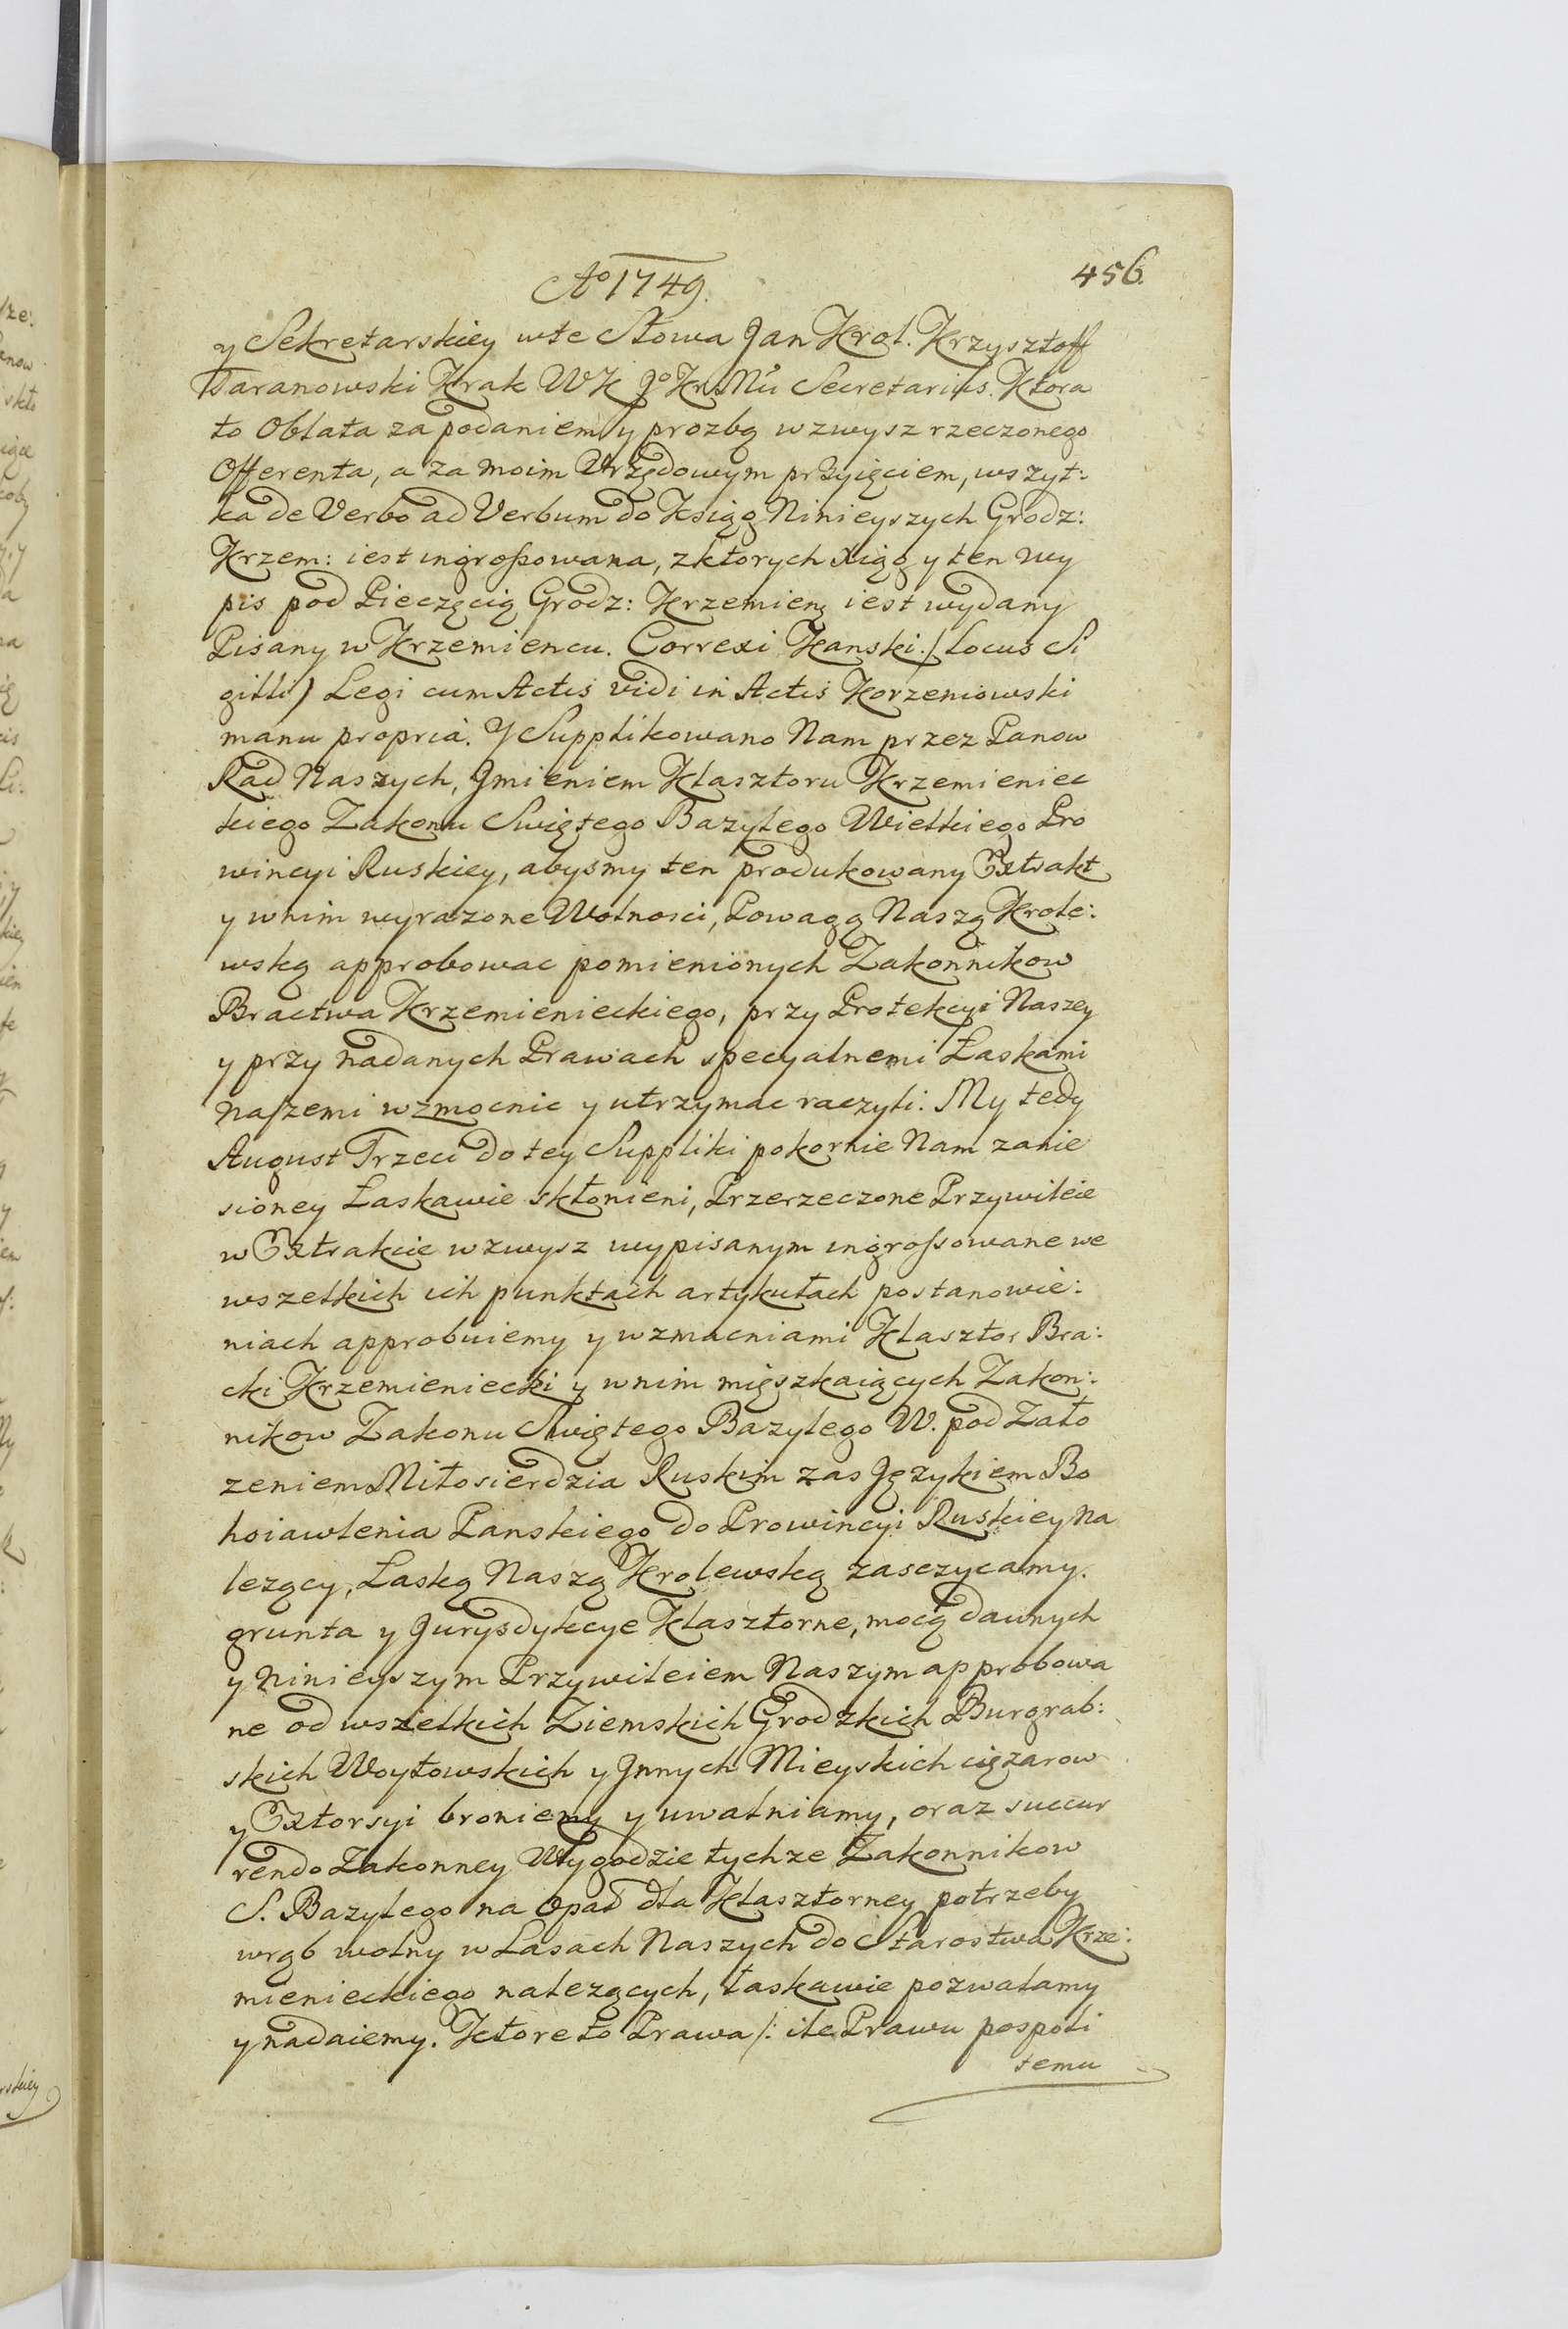 Aº 1749.
456.
y Sekretarskiey wte Słowa Jan Krol. Krzysztoff
Baranowski Krak WK Jº Kr Mci Secretarius. Ktora
to Oblata za podaniem y prozbą wzwysz rzeczonego
Offerenta, a za moim Urzędowym przyięciem, wszyt:
ka de Verbo ad Verbum do Ksiąg Ninieyszych Grodz:
Krzem: iest ingrossowana, zktorych Xiąg y ten wy
pis pod Pieczęcią Grodz: Krzemien: iest wydany
Pisany w Krzemiencu. Correxi Kanski. (Locus Si
gilli) Legi cum Actis vidi in Actis Korzeniowski
manu propria. Y Supplikowano Nam przez Panow
Rad Naszych, Jmieniem Klasztoru Krzemieniec
kiego Zakonu Swiętego Bazylego Wielkiego Pro
wincyi Ruskiey, abysmy ten produkowany Extrakt
y wnim wyrazone Wolnosci, Powagą Naszą Krole:
wską approbowac pomienionych Zakonnikow
Bractwa Krzemienieckiego, przy Protekcyi Naszey
y przy nadanych Prawach specyalnemi Łaskami
naszemi wzmocnic y utrzymac raczyli. My tedy
August Trzeci do tey Suppliki pokornie Nam zanie
sioney Łaskawie skłonieni, Przerzeczone Przywileie
w Extrakcie wzwysz wypisanym ingrossowane we
wszelkich ich punktach artykułach postanowie:
niach approbuiemy y wzmacniami Klasztor Bra:
cki Krzemieniecki y wnim mięszkaiących Zakon:
nikow Zakonu Swiętego Bazylego W. pod Zało
zeniem Miłosierdzia Ruskim zas Językiem Bo
hoiawlenia Panskiego do Prowincyi Ruskiey na
lezący, Łaską Naszą Krolewską zasczycamy.
grunta y Jurysdykcye Klasztorne, mocą dawnych
y ninieyszym Przywileiem Naszym approbowa
ne od wszelkich Ziemskich Grodzkich Burgrab:
skich Woytowskich y Jnnych Mieyskich cięzarow
y Extorsyi broniemy y uwalniamy, oraz succur
rendo Zakonney Wygodzie tychze Zakonnikow
S. Bazylego na opał dla Klasztorney potrzeby
wrąb wolny w Lasach Naszych do Starostwa Krze:
mienieckiego nalezących, łaskawie pozwalamy
y nadaiemy. Ktore to Prawa /: ile Prawu pospoli
temu